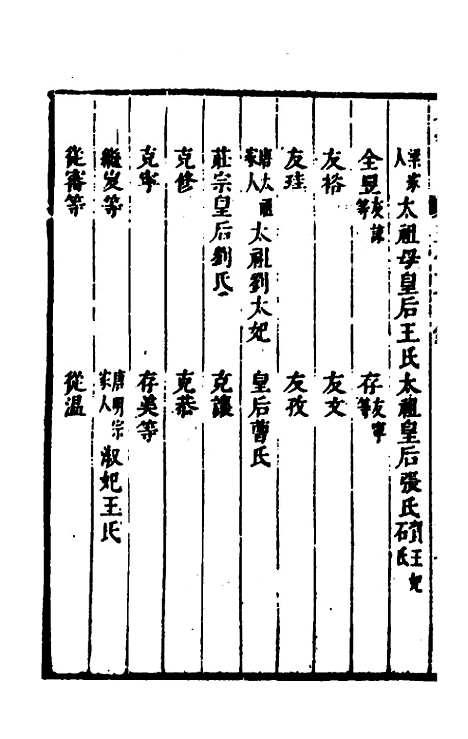 梁家人 太祖母皇后王氏 太祖皇后張氏 石氏 王妃
全昱 友諒等 存 友寧等
友裕 友文
友珪 友孜
唐太祖家人 太祖劉太妃 皇后曹氏
莊宗皇后劉氏 克讓
克修 克恭
克寧 存美等
繼岌等 唐明宗家人 淑妃王氏
從審等 從温